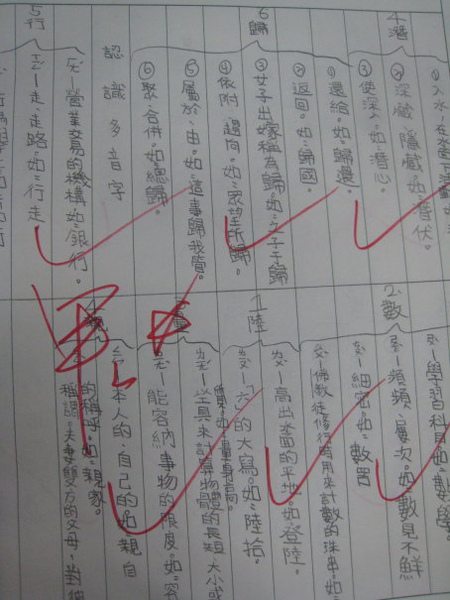 4.潛
①入水,在水
②深藏,隱藏。如:潛伏。
③使深入。如:潛心。
6.歸
①還給。如:歸還。
②返回。如:歸國。
③女子出嫁稱為歸。如:之子于歸
④依附,趨向。如:眾望所歸。
⑤屬於,由。如:這事歸我管。
⑥聚,合併。如:總歸。
認識多音字
5.行
ㄏㄤˊ—營業交易的機構。如:銀行。
ㄒㄧㄥˊ—走,走路。如:行走
2.數
學習科目。如:數學。
ㄕㄨㄛˋ—頻頻,屢次。如:數見不鮮
細密。如:數罟
佛教徒修行時用來計數的珠串。如:
1.陸
ㄌㄨˋ—高出水面的平地。如:登陸。
ㄌㄧㄡˋ—「六」的大寫。如:陸拾。
3.量
ㄌㄧㄤˊ—以工具來計算物體的長短、大小或
如:量身高。
ㄌㄧㄤˋ—能容納事物的限度。如:容
4.親
ㄑㄧㄣ—本人的,自己的。如:親自
稱謂。夫妻雙方的父母,對彼
的稱呼。如:親家。